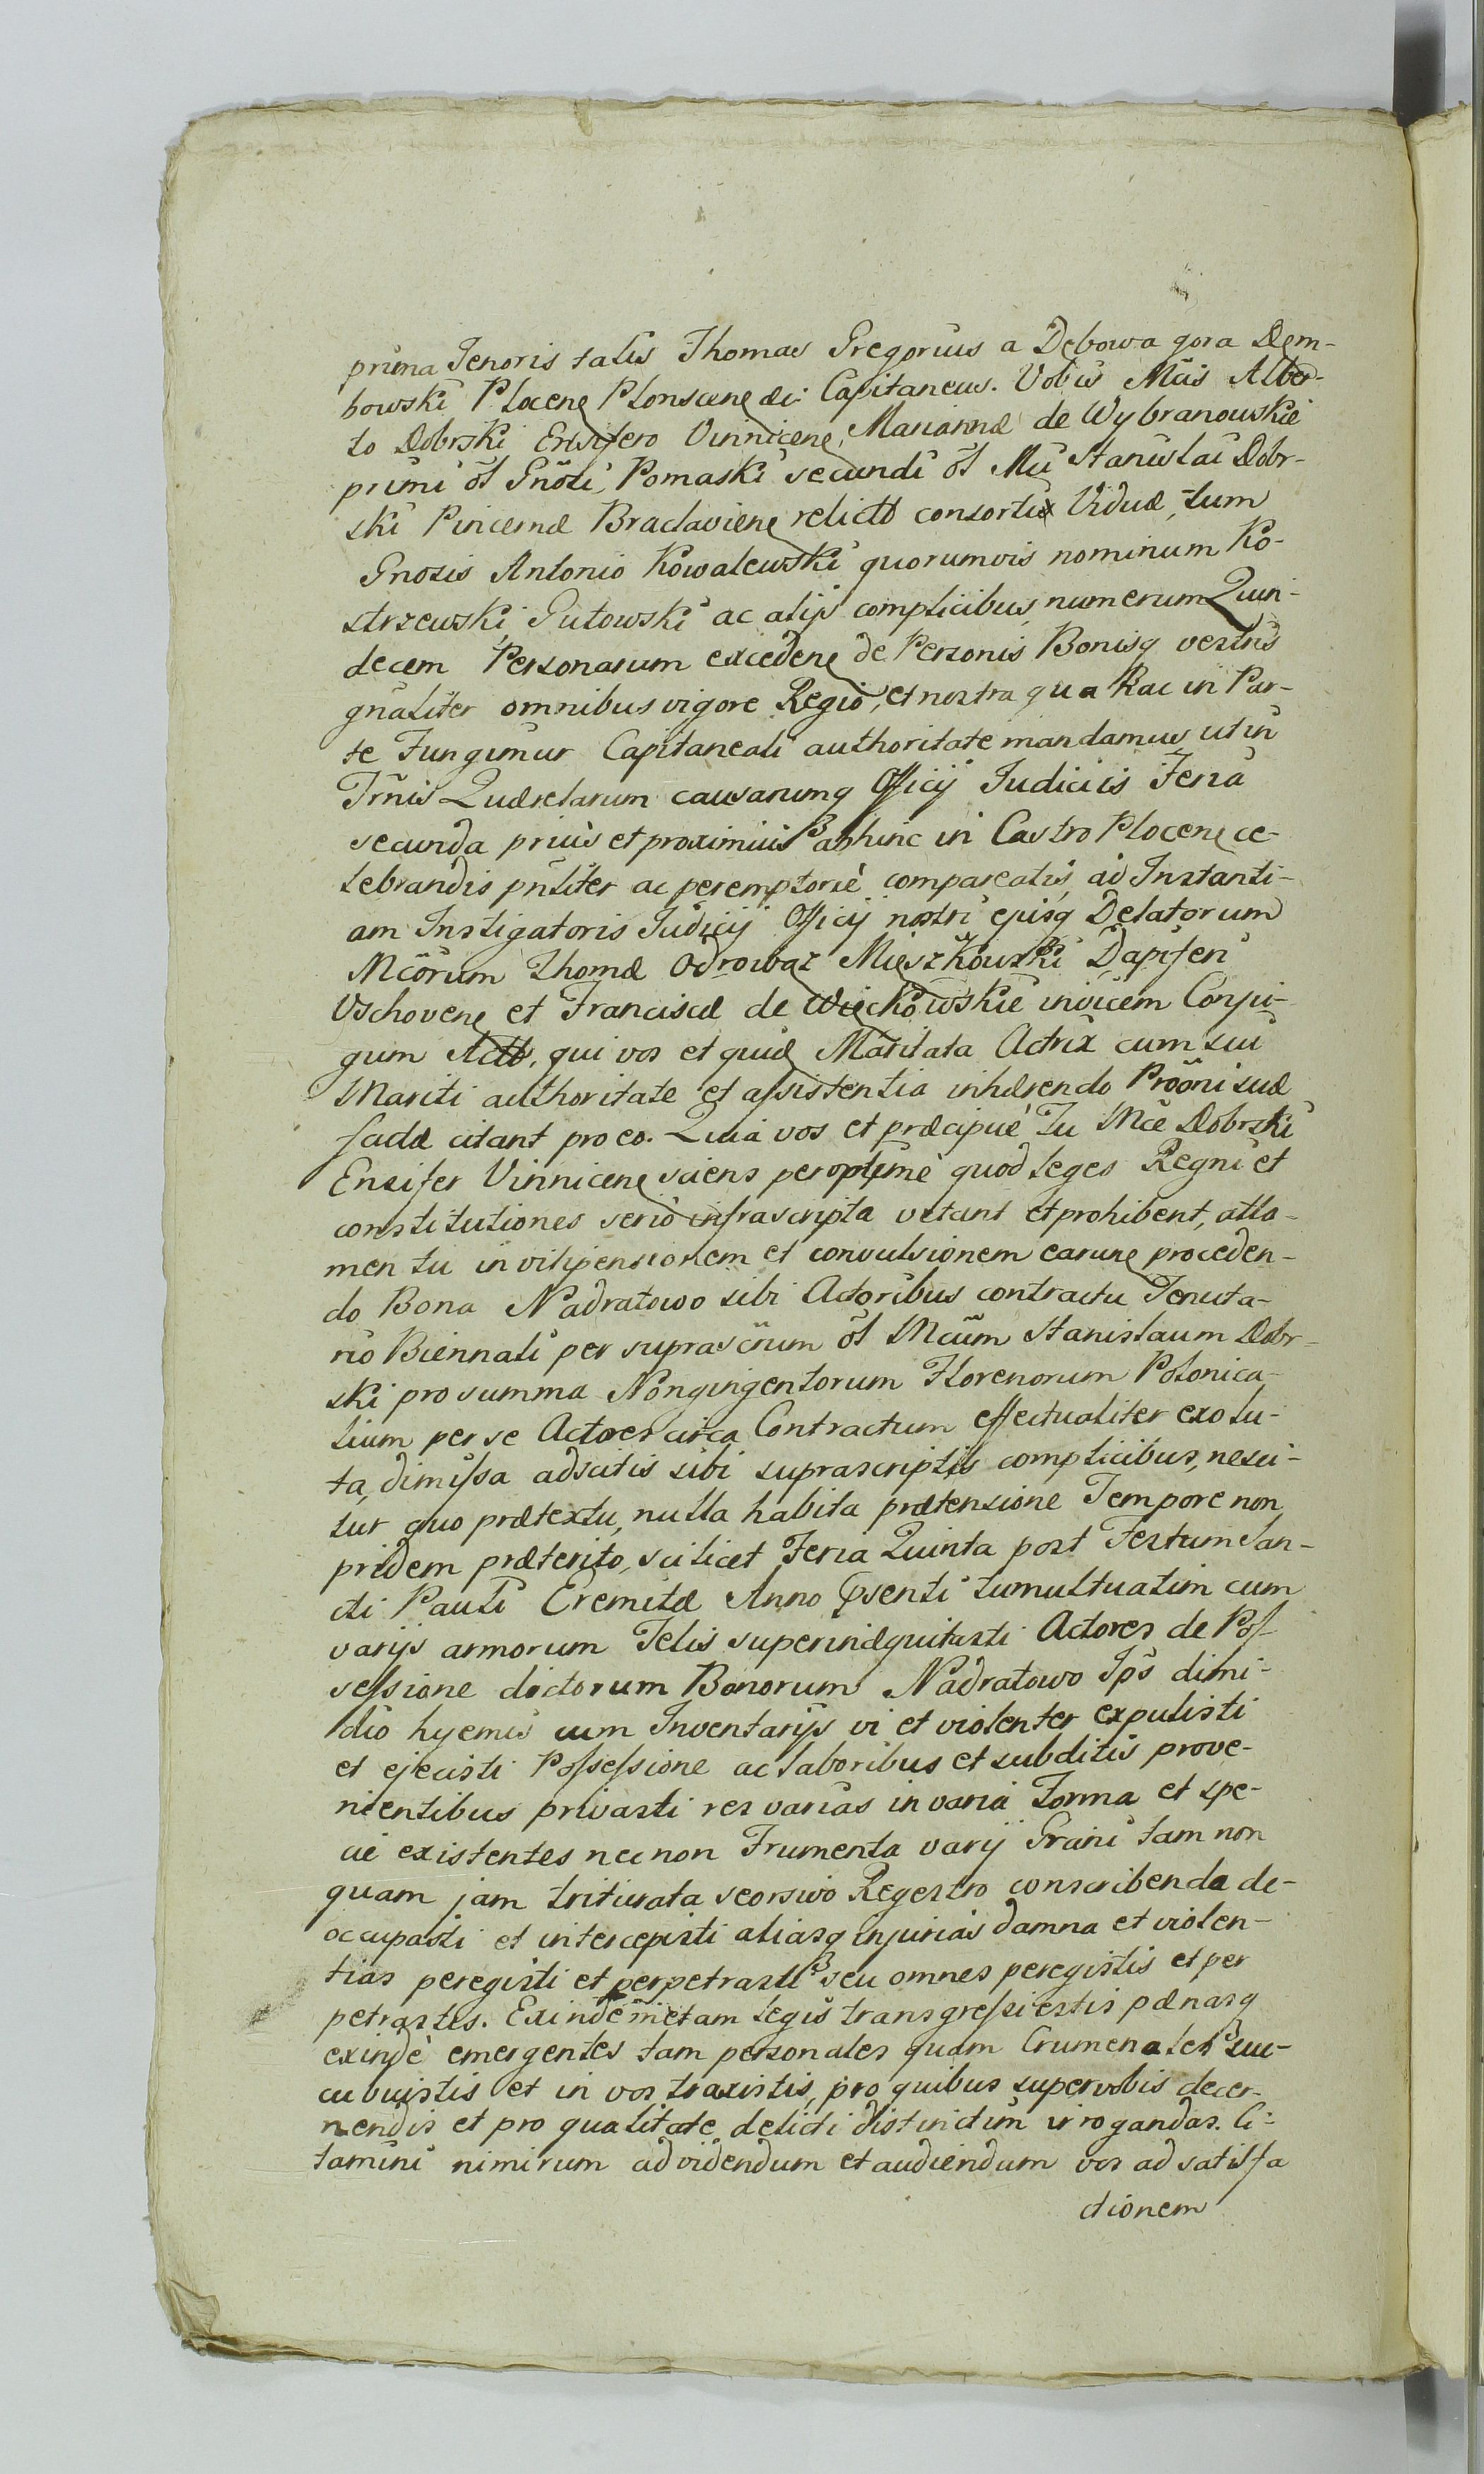 prima Tenoris talis Thomas Gregorius a Dębowa gora Dem-
bowski Plocenę Plonscenę &c: Capitaneus. Vobis Mcis Alber-
to Dobrski Ensifero Vinnicenę, Mariannæ de Wybranowskie
primi ōl Gnōzi, Pomaski secundi ōl Mci Stanislai Dobr-
ski Pincernæ Braclavienę relictæ consortis Viduæ, tum
Gnosis Antonio Kowalewski quorumvis nominum Ko-
strzewski Gutowski ac alijs complicibus, numerum Quin-
decem Personarum excedenę de Personis Bonisq vestris
gnāliter omnibus vigore Regio, et nostra qua hac in Par-
te Fungimur Capitaneali authoritate mandamus ut in
Trnis Quærelarum causarumq Officij Iudiciis Feria
secunda prius et proximius abhinc in Castro Plocenę ce-
lebrandis pnliter ac peremptoriè compareatis ad Instanti-
am Instigatoris Iudicij Officij nostri ejusq Delatorum
Mcōrum Thomæ Odrowąz Mieszkowski Dapiferi
Vschovenę et Franciscæ de Więckowskie invicem Conju-
gum Actō, qui vos et quid Maritata Actrix cum sui
Mariti authoritate et assistentia inhærendo Prōōni suæ
factæ citant pro eo. Quia vos et præcipuè Tu Mce Dobrski
Ensifer Vinnicenę sciens peroptime quod leges Regni et
constitutiones serio infrascripta vetant et prohibent, atta-
men tu in vilipensionem et convulsionem earunę proceden-
do Bona Nadratowo sibi Actoribus contractu Tenuta-
rio Biennali per suprascrium ōl Mcūm Stanislaum Dobr-
ski pro summa Nongingentorum Florenorum Polonica-
lium per se Actores circa Contractum effectualiter exolu-
ta, dimissa adscitis sibi suprascriptis complicibus, nesci-
tur quo prætextu, nulla habita prætensione Tempore non
pridem præterito, scilicet Feria Quinta post Festum San-
cti Pauli Eremitæ Anno Psenti tumultuatim cum
varijs armorum Telis superinæquitasti Actores de Pos-
sessione dictorum Bonorum Nadratowo Ips dimi-
dio hyemis cum Inventarijs vi et violenter expulisti
et ejecisti Possessione ac laboribus et subditis prove-
nientibus privasti res varias in varia Forma et spe-
cie existentes necnon Frumenta varij Grani tam non
quam jam triturata seorsivo Regestro conscribenda de-
occupasti et intercepisti aliasq injurias damna et violen-
tias peregisti et perpetrasti seu omnes peregistis et per
petrastis. Exinde metam legis transgressi estis pænasq
exindè emergentes tam personales quam Crumenales suc-
cubuistis et in vos traxistis, pro quibus super vobis decer-
nendis et pro qualitate delicti distinctim irrogandas. Ci-
tamini nimirum ad videndum et audiendum vos ad satisfa
ctionem